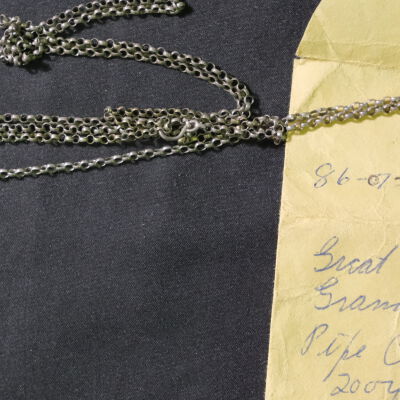 86-07-
Great
Gran
Pipe C
200y